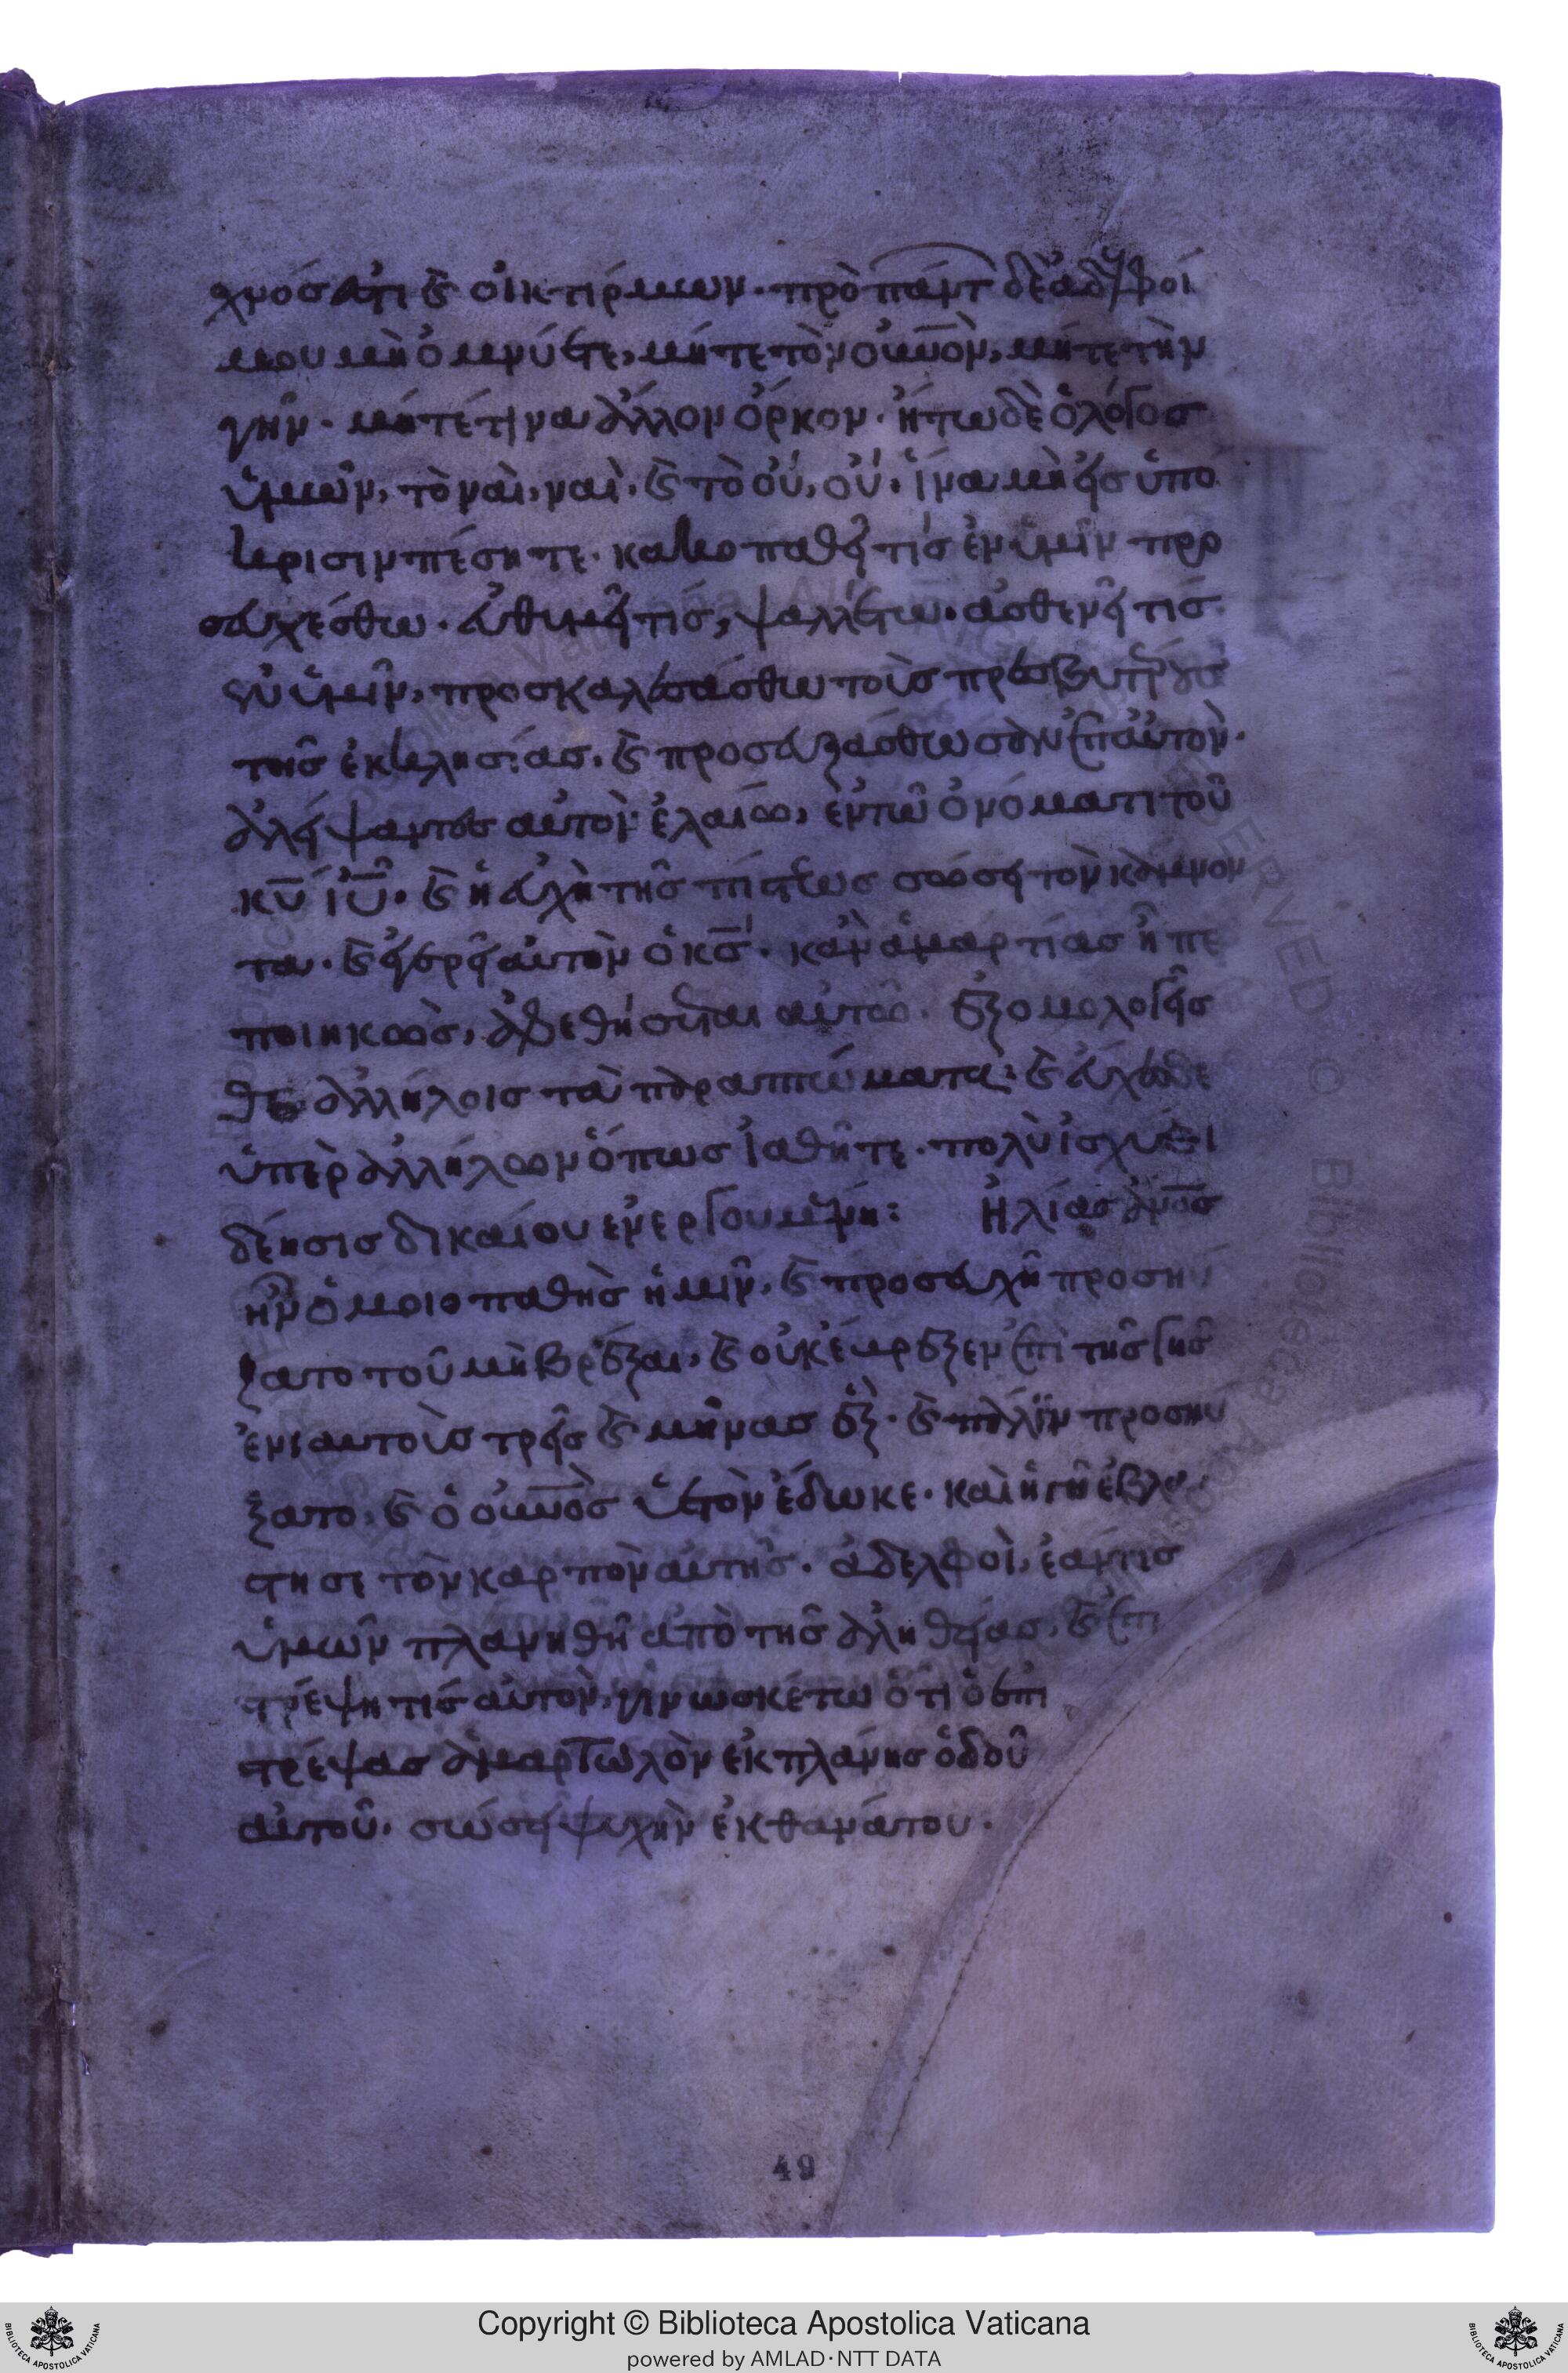 χνός ἐστι καὶ οἰκτίρμων. πρὸ πάντ δὲ ἀδελφοί
μου μὴ ὀμνύετε, μήτε τὸν οὐνον, μήτε τὴν
γῆν. μήτέ τινα ἄλλον ὅρκον. ἤτω δὲ ὁ λόγος
ὑμῶν, τὸ ναὶ, ναὶ. καὶ τὸ οὔ, οὔ. ἵνα μὴ εἰς ὑπό
κρισιν πέσητε. κακοπαθεῖ τίς ἐν ὑμῖν προ
σευχέσθω. εὐθυμεῖ τίς, ψαλλέτω. ἀσθενεῖ τίς
ἐν ὑμῖν, προσκαλεσάσθω τοὺς πρεσβυτέρους
τῆς ἐκκλησίας. καὶ προσευξάσθωσαν ἐπ αὐτὸν.
ἀλείψαντες αὐτὸν ἐλαίω, ἐν τῶ ὀνόματι τοῦ
κυ ιυ. καὶ ἡ εὐχὴ τῆς πίστεως σώσει τὸν κάμνον
τα. καὶ ἐγερεῖ αὐτὸν ὁ κς. κἂν ἁμαρτίας ἦ πε
ποιηκὼς, ἀφεθήσεται αὐτῶ. ἐξομολογεῖσ
θε ἀλλήλοις τὰ παραπτώματα. καὶ εὔχεσθε
ὑπὲρ ἀλλήλων ὅπως ἰαθῆτε. πολὺ ἰσχύει
δέησις δικαίου ἐνεργουμένη: Ἠλίας ἀνος
ἦν ὁμοιοπαθὴς ἡμῖν, καὶ προσευχῆ προσηύ
ξατο τοῦ μὴ βρέξαι, καὶ οὐκ ἔβρεξεν ἐπὶ τῆς γῆς
ἐνιαυτοὺς τρεῖς καὶ μῆνας ἓξ. καὶ πάλιν προσηύ
ξατο. καὶ ὁ οὐνος ὑετὸν ἔδωκε. καὶ ἡ γῆ ἐβλά
στησε τὸν καρπὸν αὐτῆς. ἀδελφοὶ, ἐάν τις
ὑμῶν πλανηθῆ ἀπὸ τῆς ἀληθείας, καὶ ἐπι
στρέψη τίς αὐτὸν, γινωσκέτω ὅτι ὁ ἐπι
στρέψας ἁμαρτωλὸν ἐκ πλάνης ὁδοῦ
αὐτοῦ. σώσει ψυχὴν ἐκ θανάτου.
49
Copyright © Biblioteca Apostolica Vaticana
powered by AMLAD·NTT DATA